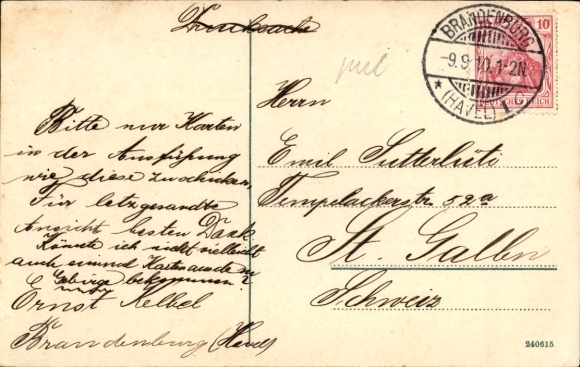 Drucksache
BRANDENBURG
-9.9.10.1-2N.
* (HAVEL) 1 C
10
DEUTSCHES REICH
Herrn
Emil Sutterlüti
Tempelackerstr. 52a
St. Gallen
Schweiz
Bitte nur Karten
in der Ausführung
wie diese zuschicken,
Für letzgesandte
Ansicht besten Dank
Könnte ich nicht vielleicht
auch einmal Karten aus dem
Gebirge bekommen?
Ernst Kelbel
Brandenburg (Havel)
240615